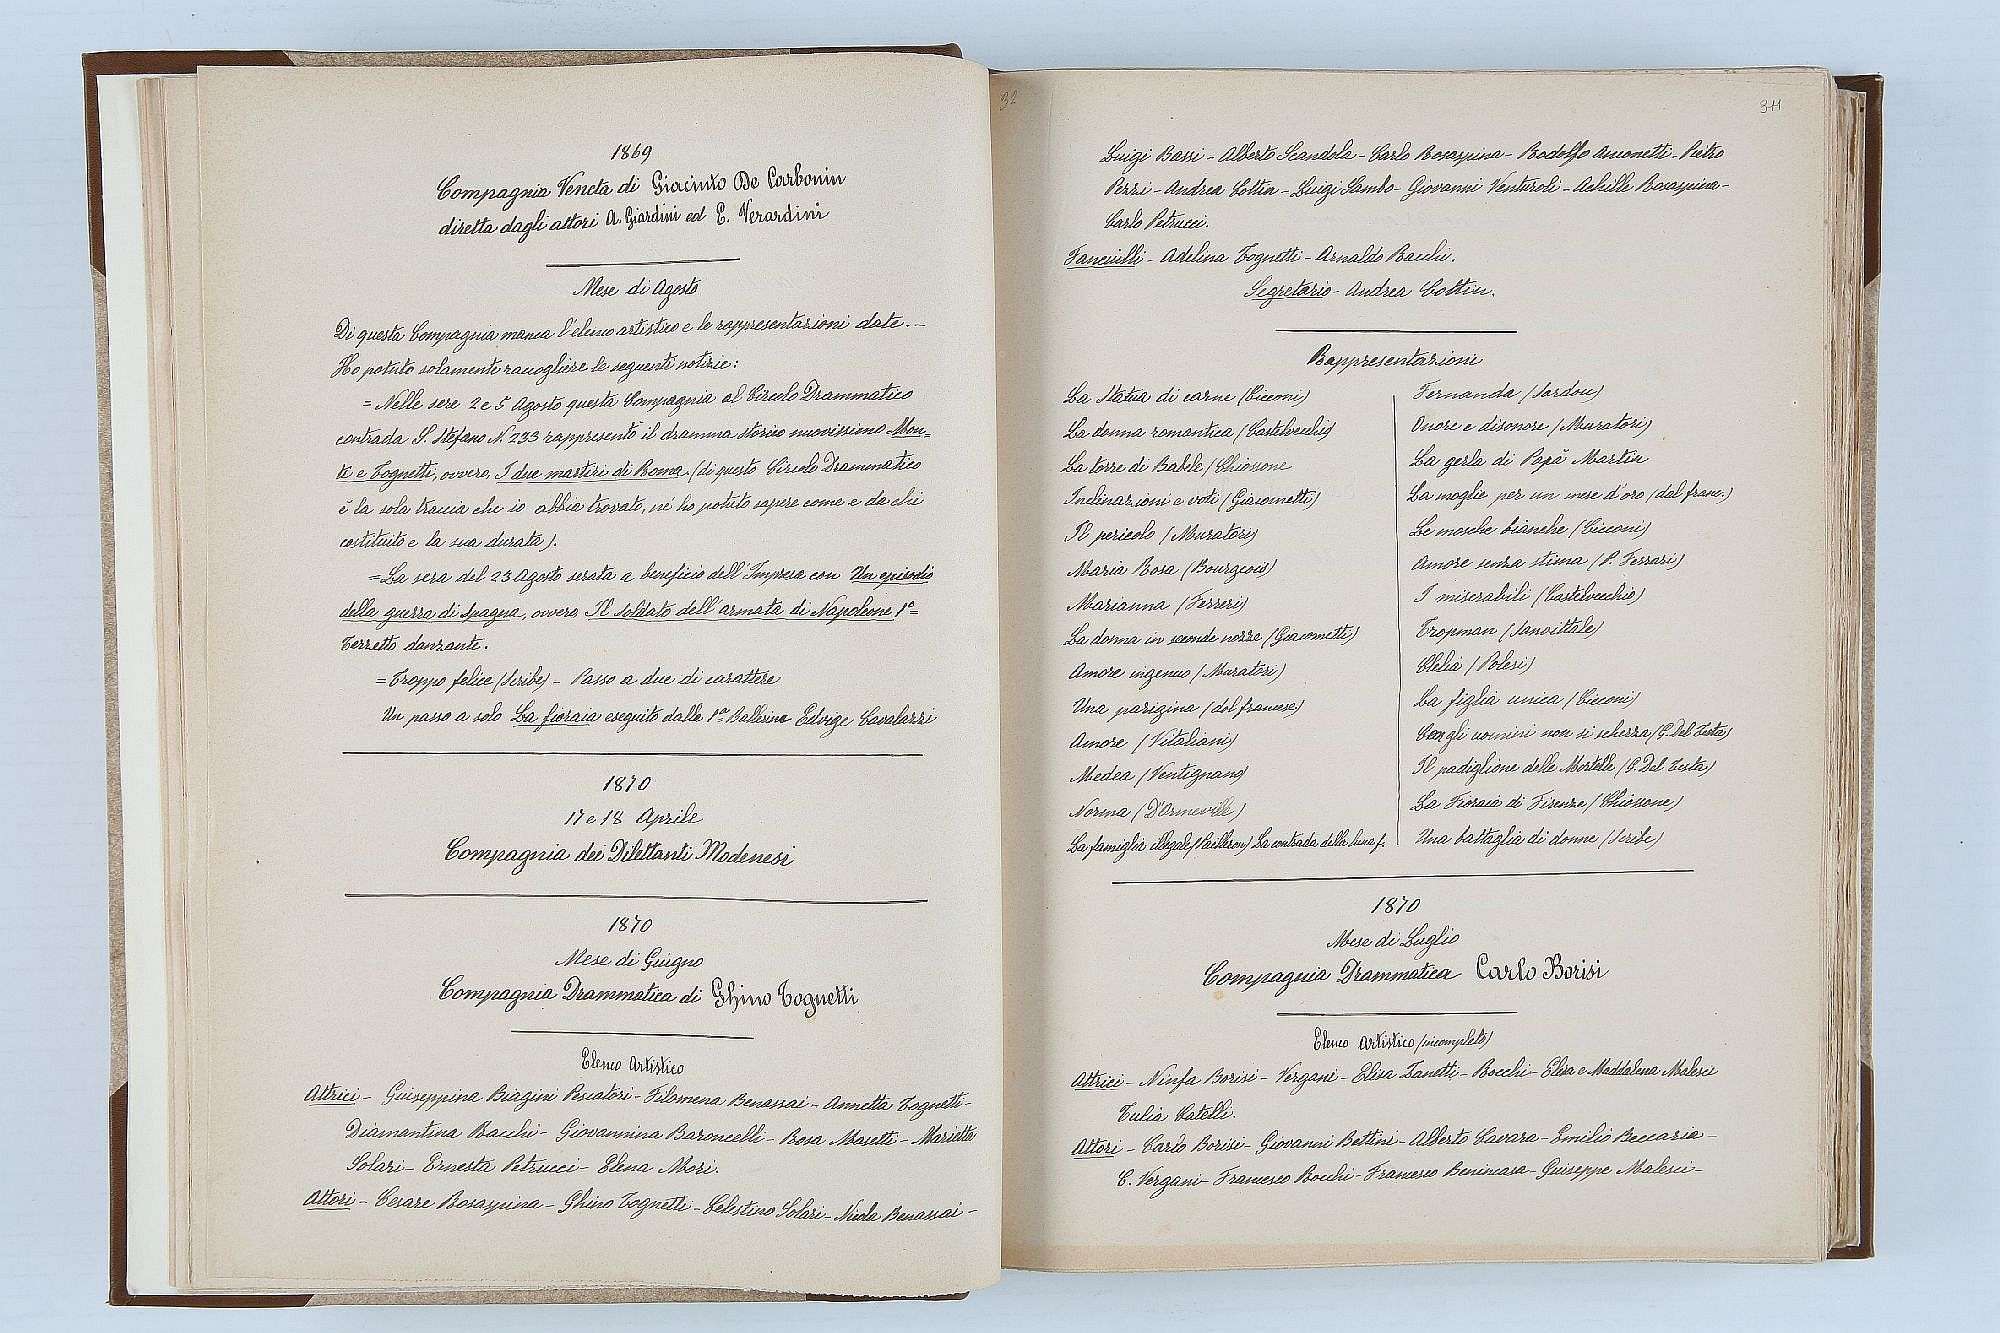 32
1869
Compagnia Veneta di Giacinto De Carbonin
diretta dagli attori A. Giardini ed E. Verardini
Mese di Agosto
Di questa Compagnia manca l'elenco artistico e le rappresentazioni date. –
Ho potuto solamente raccogliere le seguenti notizie:
= Nelle sere 2 e 5 Agosto questa Compagnia al Circolo Drammatico
contrada S. Stefano N. 233 rappresentò il dramma storico nuovissimo Mon=
ti e Tognetti, ovvero, I due martiri di Roma. (di questo Circolo Drammatico
è la sola traccia che io abbia trovato, nè ho potuto sapere come e da chi
costituito e la sua durata).
= La sera del 23 Agosto serata a beneficio dell'Impresa con Un episodio
della guerra di Spagna, ovvero, Il soldato dell'armata di Napoleone 1º=
Terzetto danzante.
= Troppo felice (Scribe) – Passo a due di carattere
Un passo a solo La fioraia eseguito dalla 1ª Ballerina Edvige Cavalazzi
1870
17 e 18 Aprile
Compagnia dei Dilettanti Modenesi
1870
Mese di Giugno
Compagnia Drammatica di Ghino Tognetti
Elenco Artistico
Attrici – Giuseppina Biagini Pescatori – Filomena Benassai – Annetta Tognetti –
Diamantina Bacchi – Giovannina Baroncelli – Rosa Masetti – Marietta
Solari – Ernesta Petrucci – Elena Mori.
Attori – Cesare Rosaspina – Ghino Tognetti – Celestino Solari – Nicola Benassai –
311
Luigi Bassi – Alberto Scandola – Carlo Rosaspina – Rodolfo Amonetti – Pietro
Pezzi – Andrea Cottin – Luigi Sambo – Giovanni Venturoli – Achille Rosaspina –
Carlo Petrucci.
Fanciulli – Adelina Tognetti – Arnaldo Bacchi.
Segretario – Andrea Cottin.
Rappresentazioni
La Statua di carne (Cicconi)
La donna romantica (Castelvecchio)
La torre di Babele (Chiossone
Inclinazioni e voti (Giacometti)
Il pericolo (Muratori)
Maria Rosa (Bourgeois)
Marianna (Ferreri)
La donna in seconde nozze (Giacometti)
Amore ingenuo (Muratori)
Una parigina (dal francese)
Amore (Vitaliani)
Medea (Ventignano)
Norma (D'Ormeville)
La famiglia illegale (Pailleron) La contrada della luna f.
Fernanda (Sardou)
Onore e disonore (Muratori)
La gerla di Papà Martin
La moglie per un mese d'oro (dal franc.)
Le mosche bianche (Cicconi)
Amore senza stima (P. Ferrari)
I miserabili (Castelvecchio)
Tropman (Sanvittale)
Clelia (Polesi)
La figlia unica (Cicconi)
Con gli uomini non si scherza (G. Del Testa)
Il padiglione delle Mortelle (G. Del Testa)
La Fioraia di Firenze (Chiossone)
Una battaglia di donne (Scribe)
1870
Mese di Luglio
Compagnia Drammatica Carlo Borisi
Elenco Artistico (incompleto)
Attrici – Ninfa Borisi – Vergani – Elisa Zanetti – Bocchi – Elisa e Maddalena Malesci
Tulia Catelli.
Attori – Carlo Borisi – Giovanni Bettini – Alberto Cavara – Emilio Beccaria –
C. Vergani – Francesco Bocchi – Francesco Benincasa – Guiseppe Malesci –